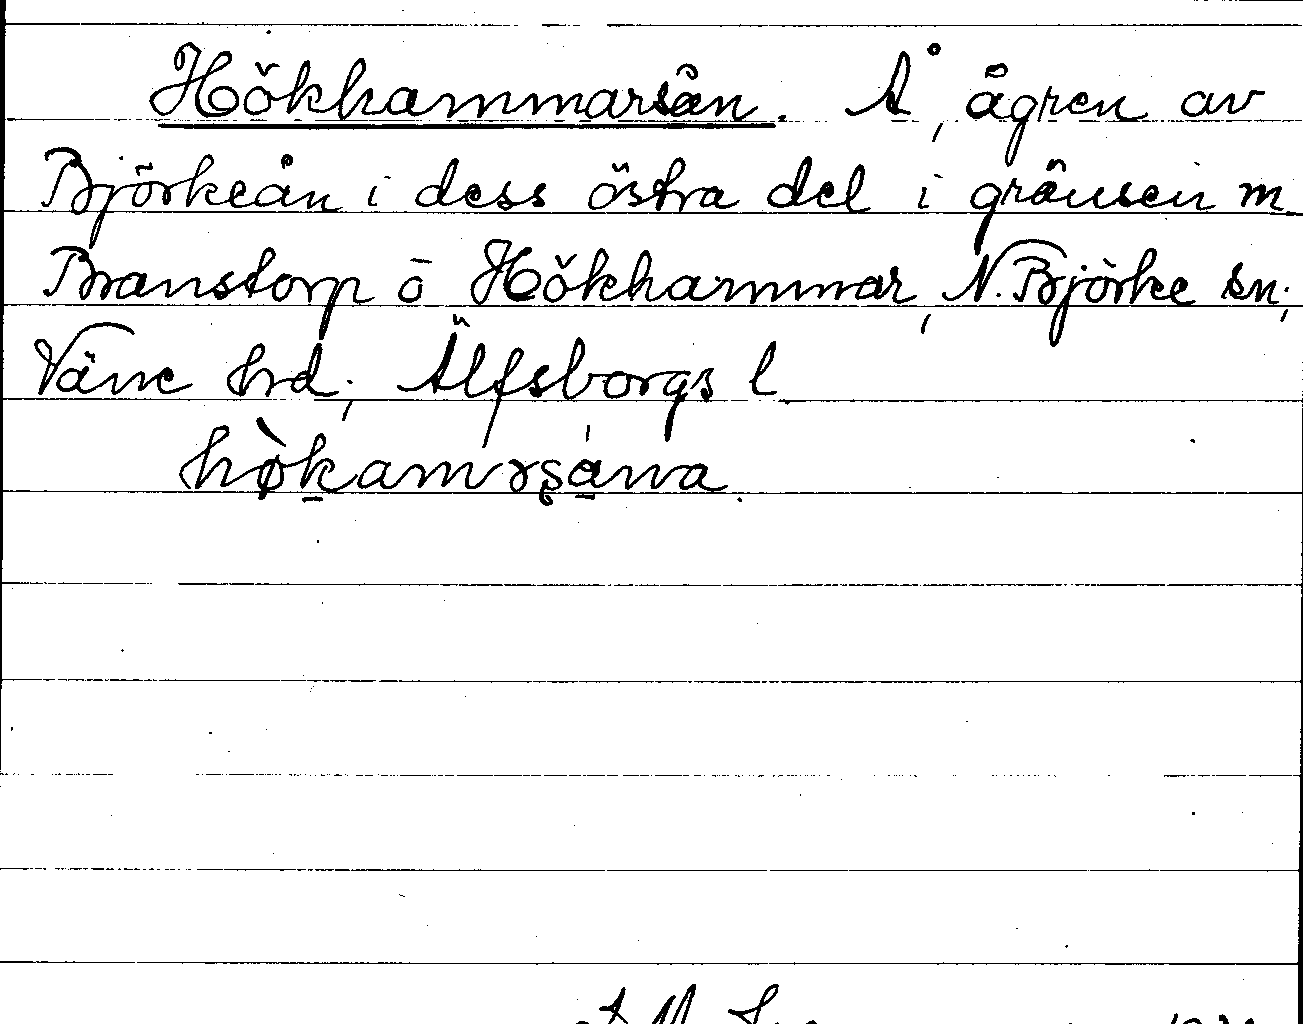 Hökhammarsån. Å, ågren av
Björkeån i dess östra del i gränsen m
Branstorp o Hökhammar, N. Björke sn;
Väne hrd; Älfsborgs l
hø̀kamrsána.